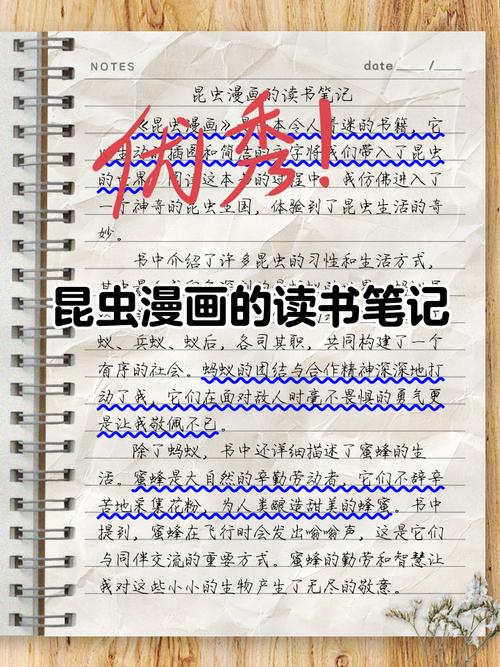 NOTES
date / /
昆虫漫画的读书笔记
《昆虫漫画》是 本令人 迷的书籍，它
生动 插图和简洁的文字将我们带入了昆虫
的 界 阅读这本 的 程中 我仿佛进入了
一个神奇的昆虫王国，体验到了昆虫生活的奇
妙。
优秀！
书中介绍了许多昆虫的习性和生活方式，
昆虫漫画的读书笔记
蚁、兵蚁、蚁后，各司其职，共同构建了一个
有序的社会。蚂蚁的团结与合作精神深深地打
动了我，它们在面对敌人时毫不畏惧的勇气更
是让我敬佩不已。
除了蚂蚁，书中还详细描述了蜜蜂的生
活。蜜蜂是大自然的辛勤劳动者，它们不辞辛
苦地采集花粉，为人类酿造甜美的蜂蜜。书中
提到，蜜蜂在飞行时会发出嗡嗡声，这是它们
与同伴交流的重要方式。蜜蜂的勤劳和智慧让
我对这些小小的生物产生了无尽的敬意。